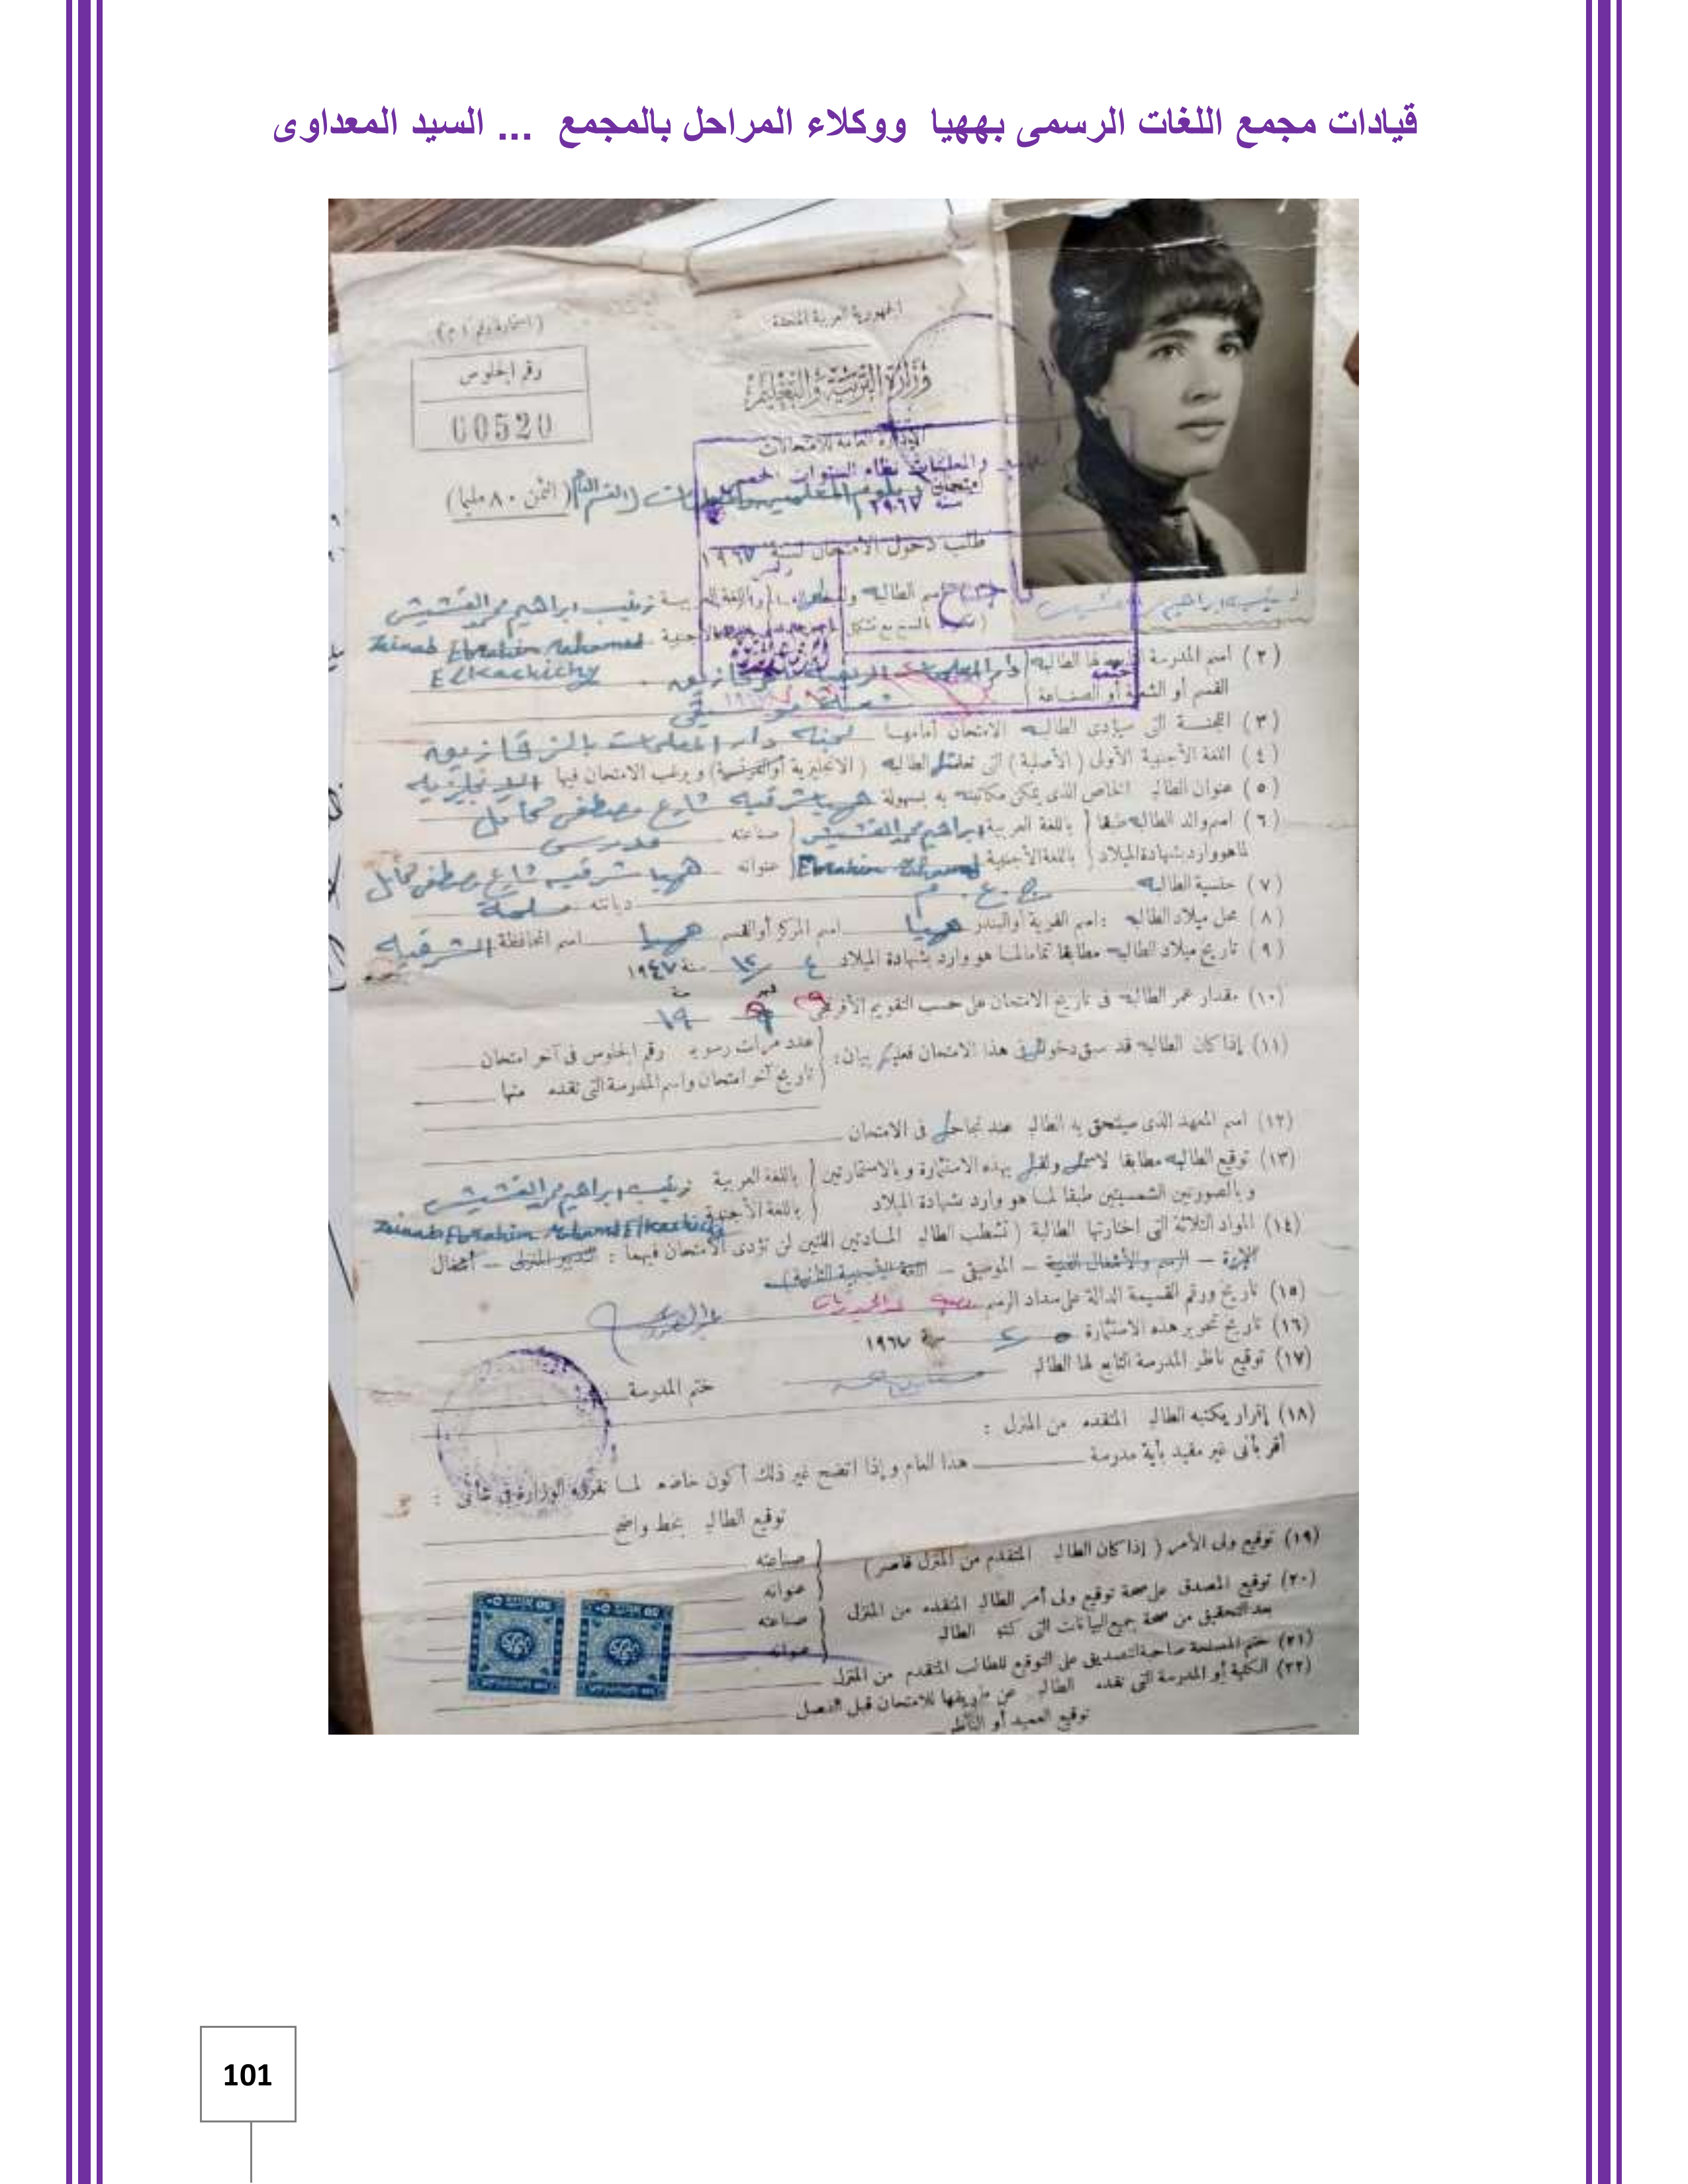 قيادات مجمع اللغات الرسمى بههيا ووكلاء المراحل بالمجمع ... السيد المعداوى
الجمهورية العربية المتحدة
وزارة التربية والتعليم
رقم الجلوس
00520
الإدارة العامة للامتحانات
(الثمن ٨٠ مليما)
طلب دخول الامتحان لسنة ١٩٦٧
زينب ابراهيم محمد القشيشى
Zeinab Ebrahim Mohamed
Elkachichy
(٢) اسم المدرسة
القسم أو الشعبة أو الصناعة
(٣) اللجنة التى سيؤدى الطالبه الامتحان أمامها لجنة دار المعلمات بالزقازيق
(٤) اللغة الأجنبية الأولى (الأصلية) التى تعلمها الطالبه (الانجليزية أو الفرنسية) ويرغب الامتحان فيها الإنجليزيه
(٥) عنوان الطالبه الخاص الذى يمكن مكاتبته به بسهولة ههيا شرقيه شارع مصطفى كامل
(٦) اسم والد الطالبه طبقا باللغة العربية ابراهيم محمد القشيشى صناعته مدرس
لما هو وارد بشهادة الميلاد باللغة الأجنبية Ebrahim Mohamed عنوانه ههيا شرقيه شارع مصطفى كامل
(٧) جنسية الطالبه ج.ع.م ديانته مسلمة
(٨) محل ميلاد الطالبه : اسم القرية أو البندر ههيا اسم المركز أو القسم ههيا اسم المحافظة الشرقيه
(٩) تاريخ ميلاد الطالبه مطابقا تماما لما هو وارد بشهادة الميلاد ٤ / ١٢ سنة ١٩٤٧
(١٠) مقدار عمر الطالبه فى تاريخ الامتحان على حسب التقويم الأفرنجى ١٩
(١١) إذا كان الطالبه قد سبق دخولها فى هذا الامتحان فعليها بيان : عدد مرات رسوبه رقم الجلوس فى آخر امتحان
تاريخ آخر امتحان واسم المدرسة التى تقدم منها
(١٢) اسم المعهد الذى سيلتحق به الطالب عند نجاحه فى الامتحان
(١٣) توقيع الطالبه مطابقا لاسمها ولقبها بهذه الاستمارة وبالاستمارتين باللغة العربية زينب ابراهيم محمد القشيشى
وبالصورتين الشمسيتين طبقا لما هو وارد بشهادة الميلاد باللغة الأجنبية Zeinab Ebrahim Mohamed Elkachichy
(١٤) المواد الثلاثة التى اختارتها الطالبة (تشطب الطالبة المادتين اللتين لن تؤدى الامتحان فيهما : التدبير المنزلى – أشغال
الإبرة – الرسم والأشغال الفنية – الموسيقى – اللغة الأجنبية الثانية)
(١٥) تاريخ ورقم القسيمة الدالة على سداد الرسم
(١٦) تاريخ تحرير هذه الاستمارة ٥ / ٢ سنة ١٩٦٧
(١٧) توقيع ناظر المدرسة التابع لها الطالب
ختم المدرسة
(١٨) إقرار يكتبه الطالب المتقدم من المنزل :
أقر بأنى غير مقيد بأية مدرسة هذا العام وإذا اتضح غير ذلك أكون خاضعا لما تقرره الوزارة فى شأنى :
توقيع الطالب بخط واضح
(١٩) توقيع ولى الأمر (إذا كان الطالب المتقدم من المنزل قاصر) صناعته
عنوانه
(٢٠) توقيع المصدق على صحة توقيع ولى أمر الطالب المتقدم من المنزل صناعته
بعد التحقيق من صحة جميع البيانات التى كتبها الطالب عنوانه
(٢١) ختم المصلحة صاحبة التصديق على التوقيع للطالب المتقدم من المنزل
(٢٢) الكلية أو المدرسة التى تقدم الطالب عن طريقها للامتحان قبل الفصل
توقيع العميد أو الناظر
101